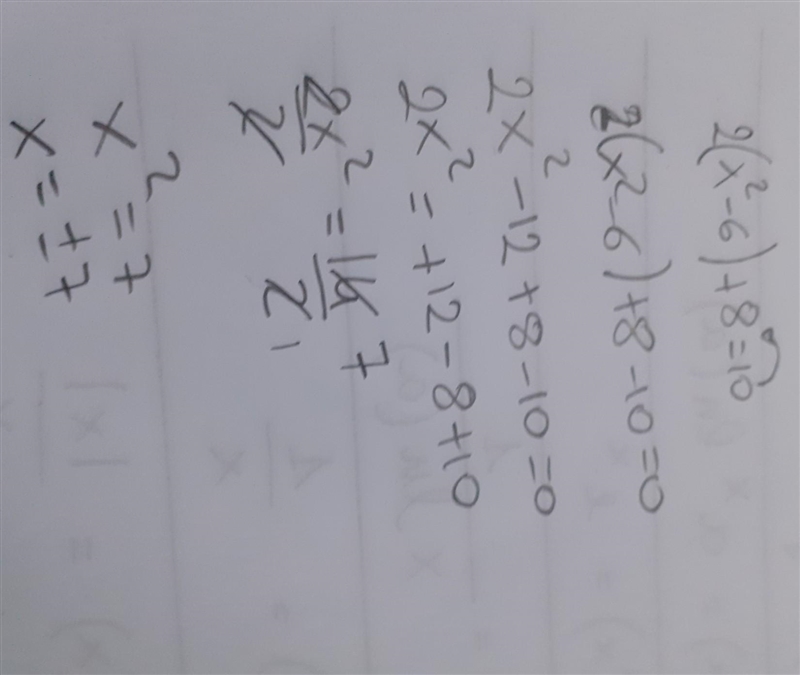 2(x²-6)+8=10
2(x²-6)+8-10=0
2x²-12+8-10=0
2x²=+12-8+10
2x²/2=14/2 7 1
x²=7
x=±7